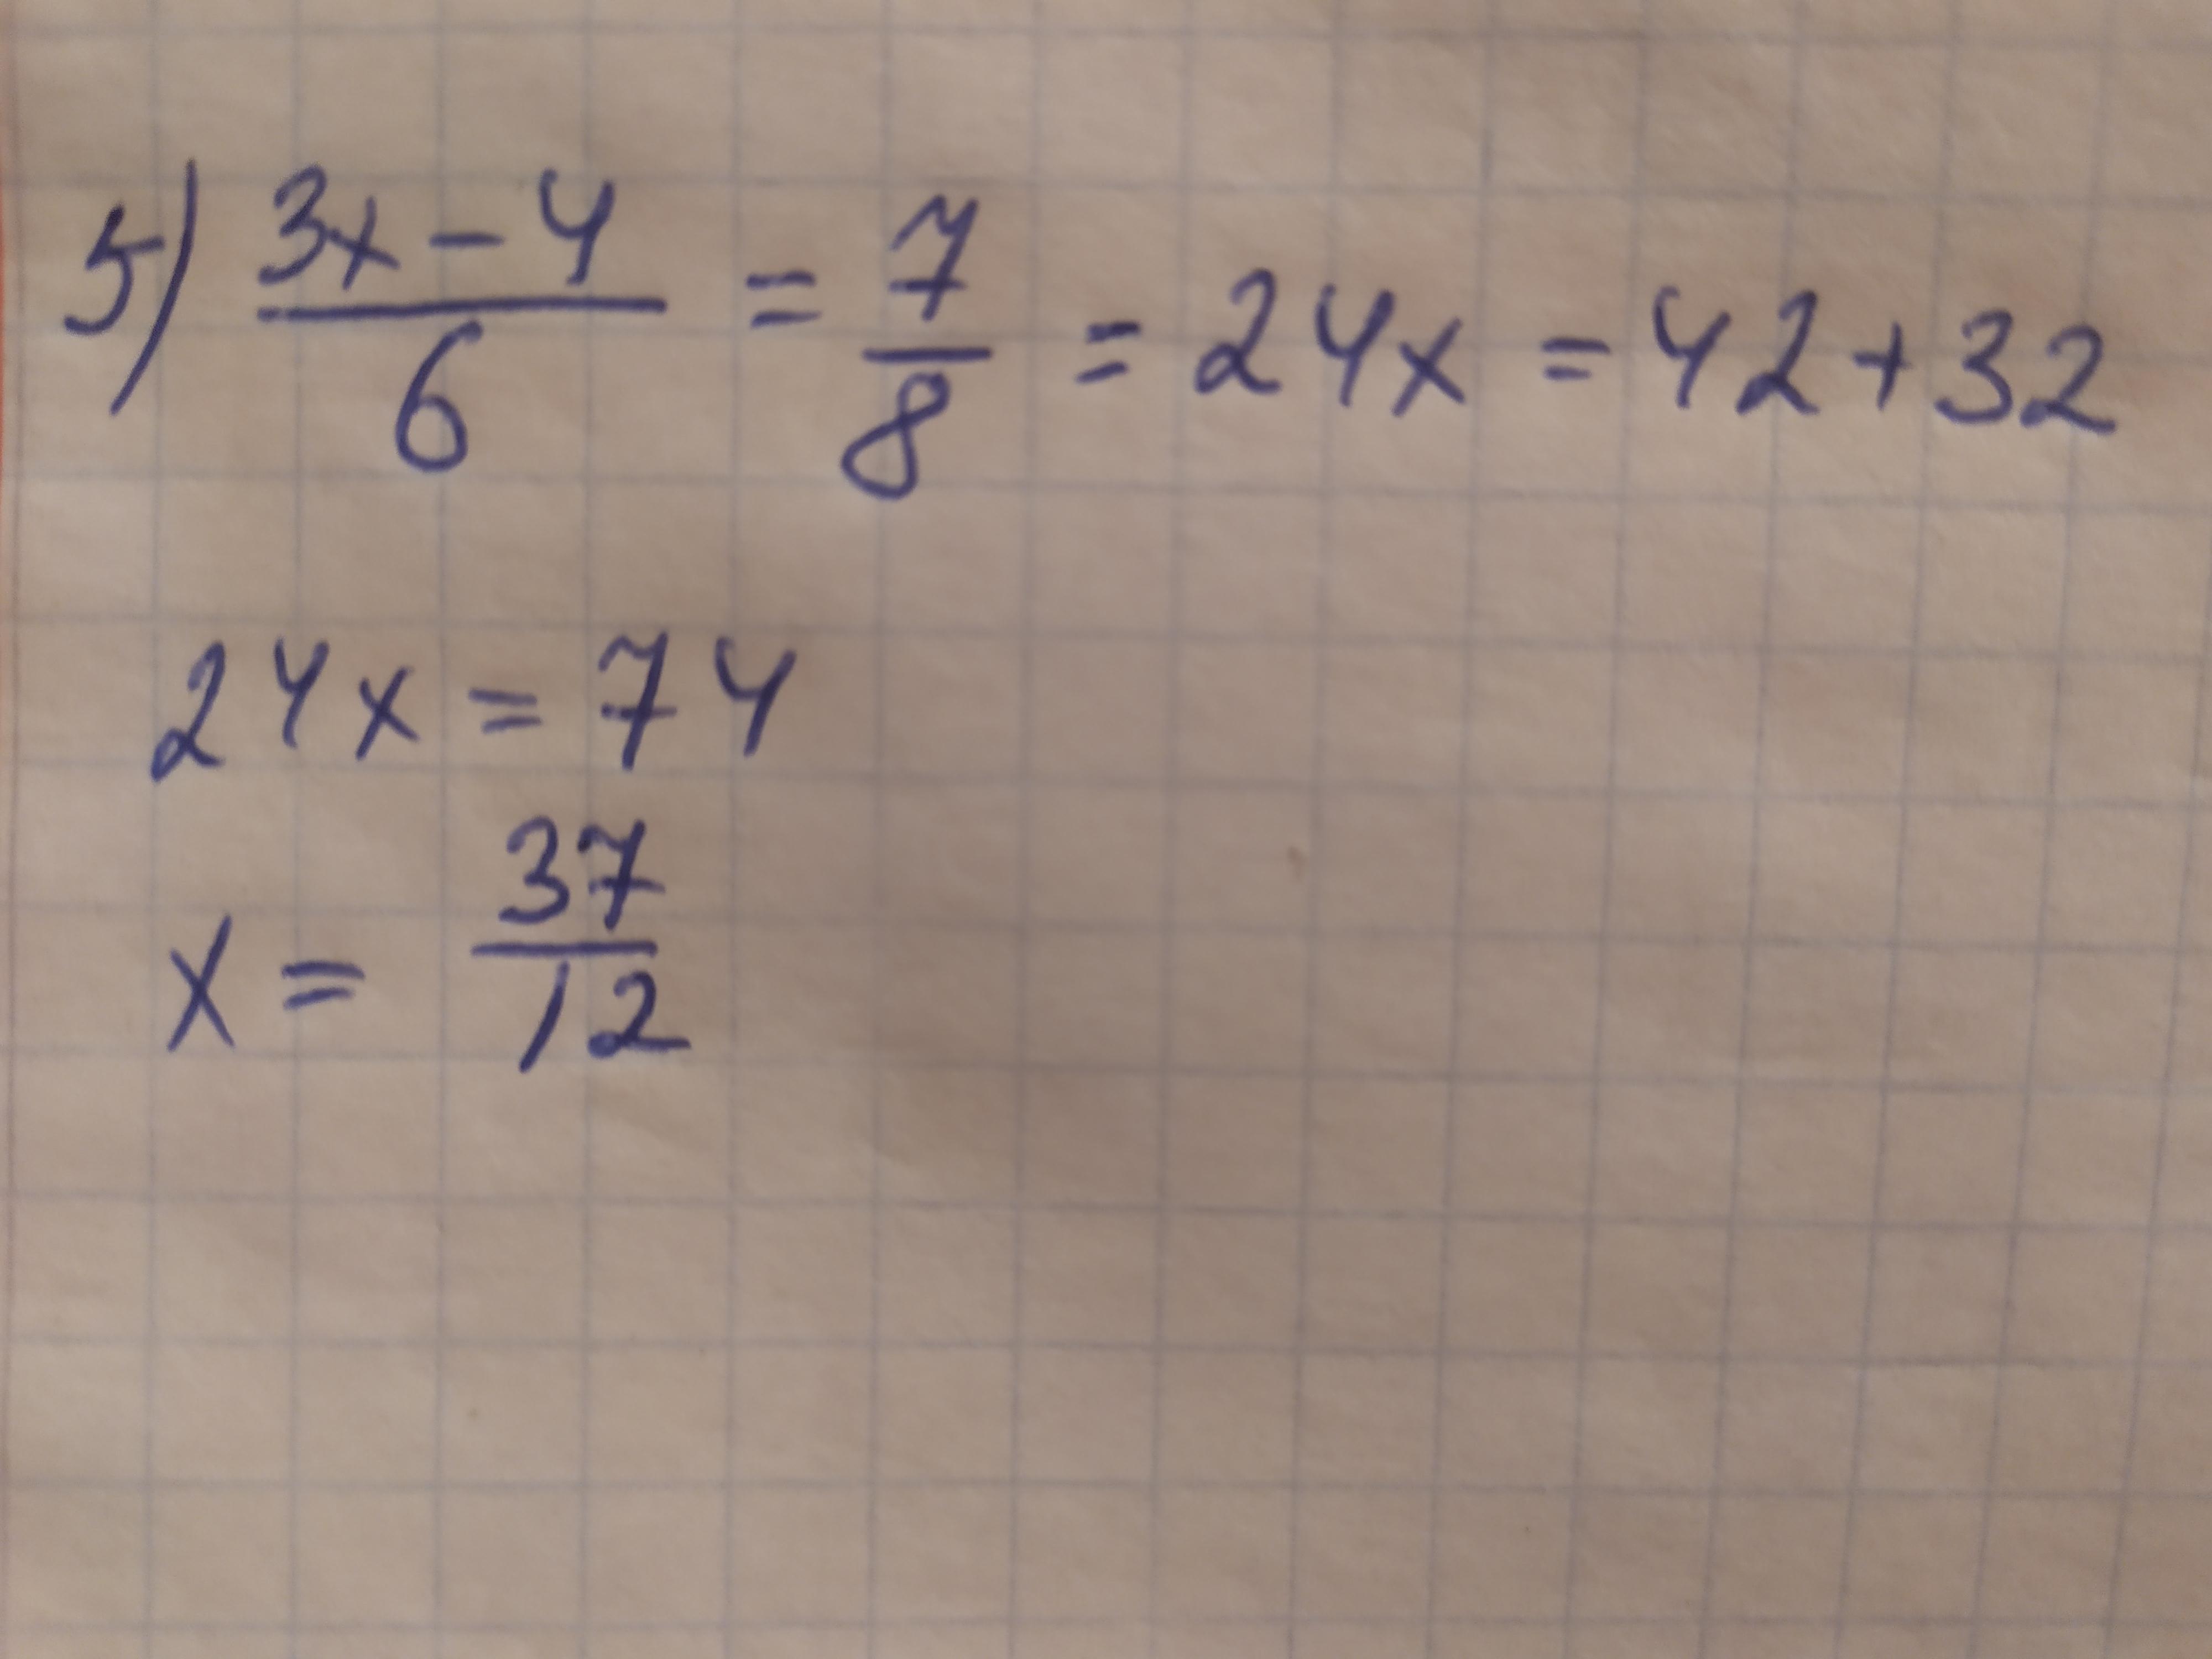 5) \frac{3x-4}{6} = \frac{7}{8} = 24x = 42+32
24x = 74
x = \frac{37}{12}